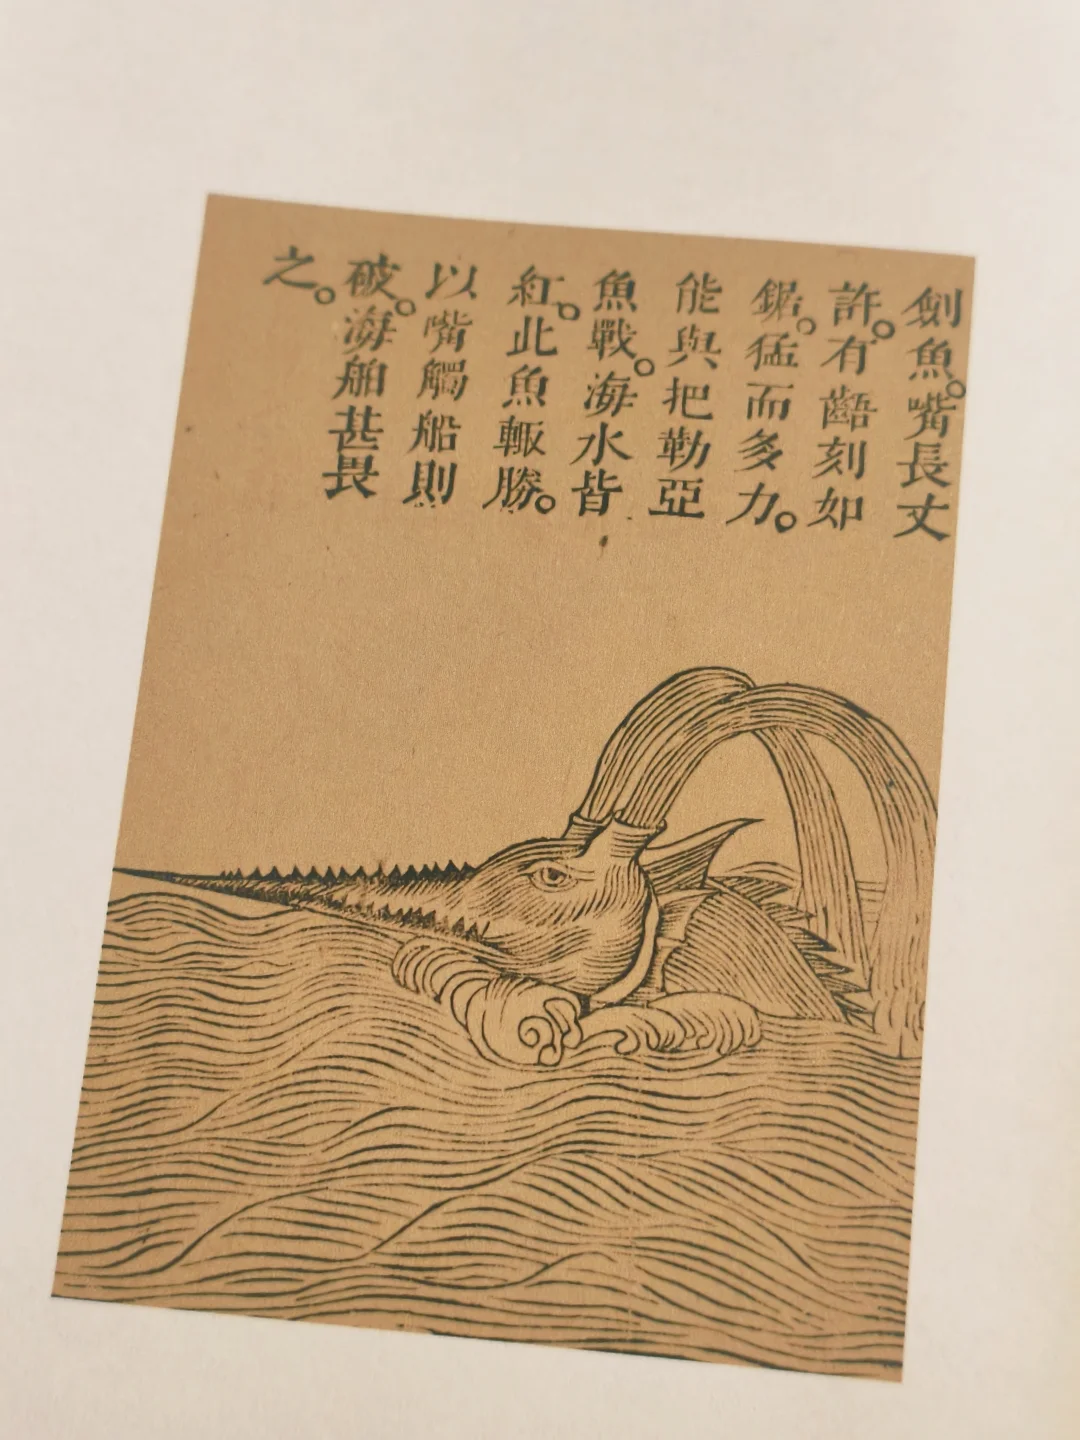 劍魚。嘴長丈
許。有齬刻如
鋸。猛而多力。
能與把勒亞
魚戰。海水皆
紅。此魚輙勝。
以嘴觸船則
破。海舶甚畏
之。